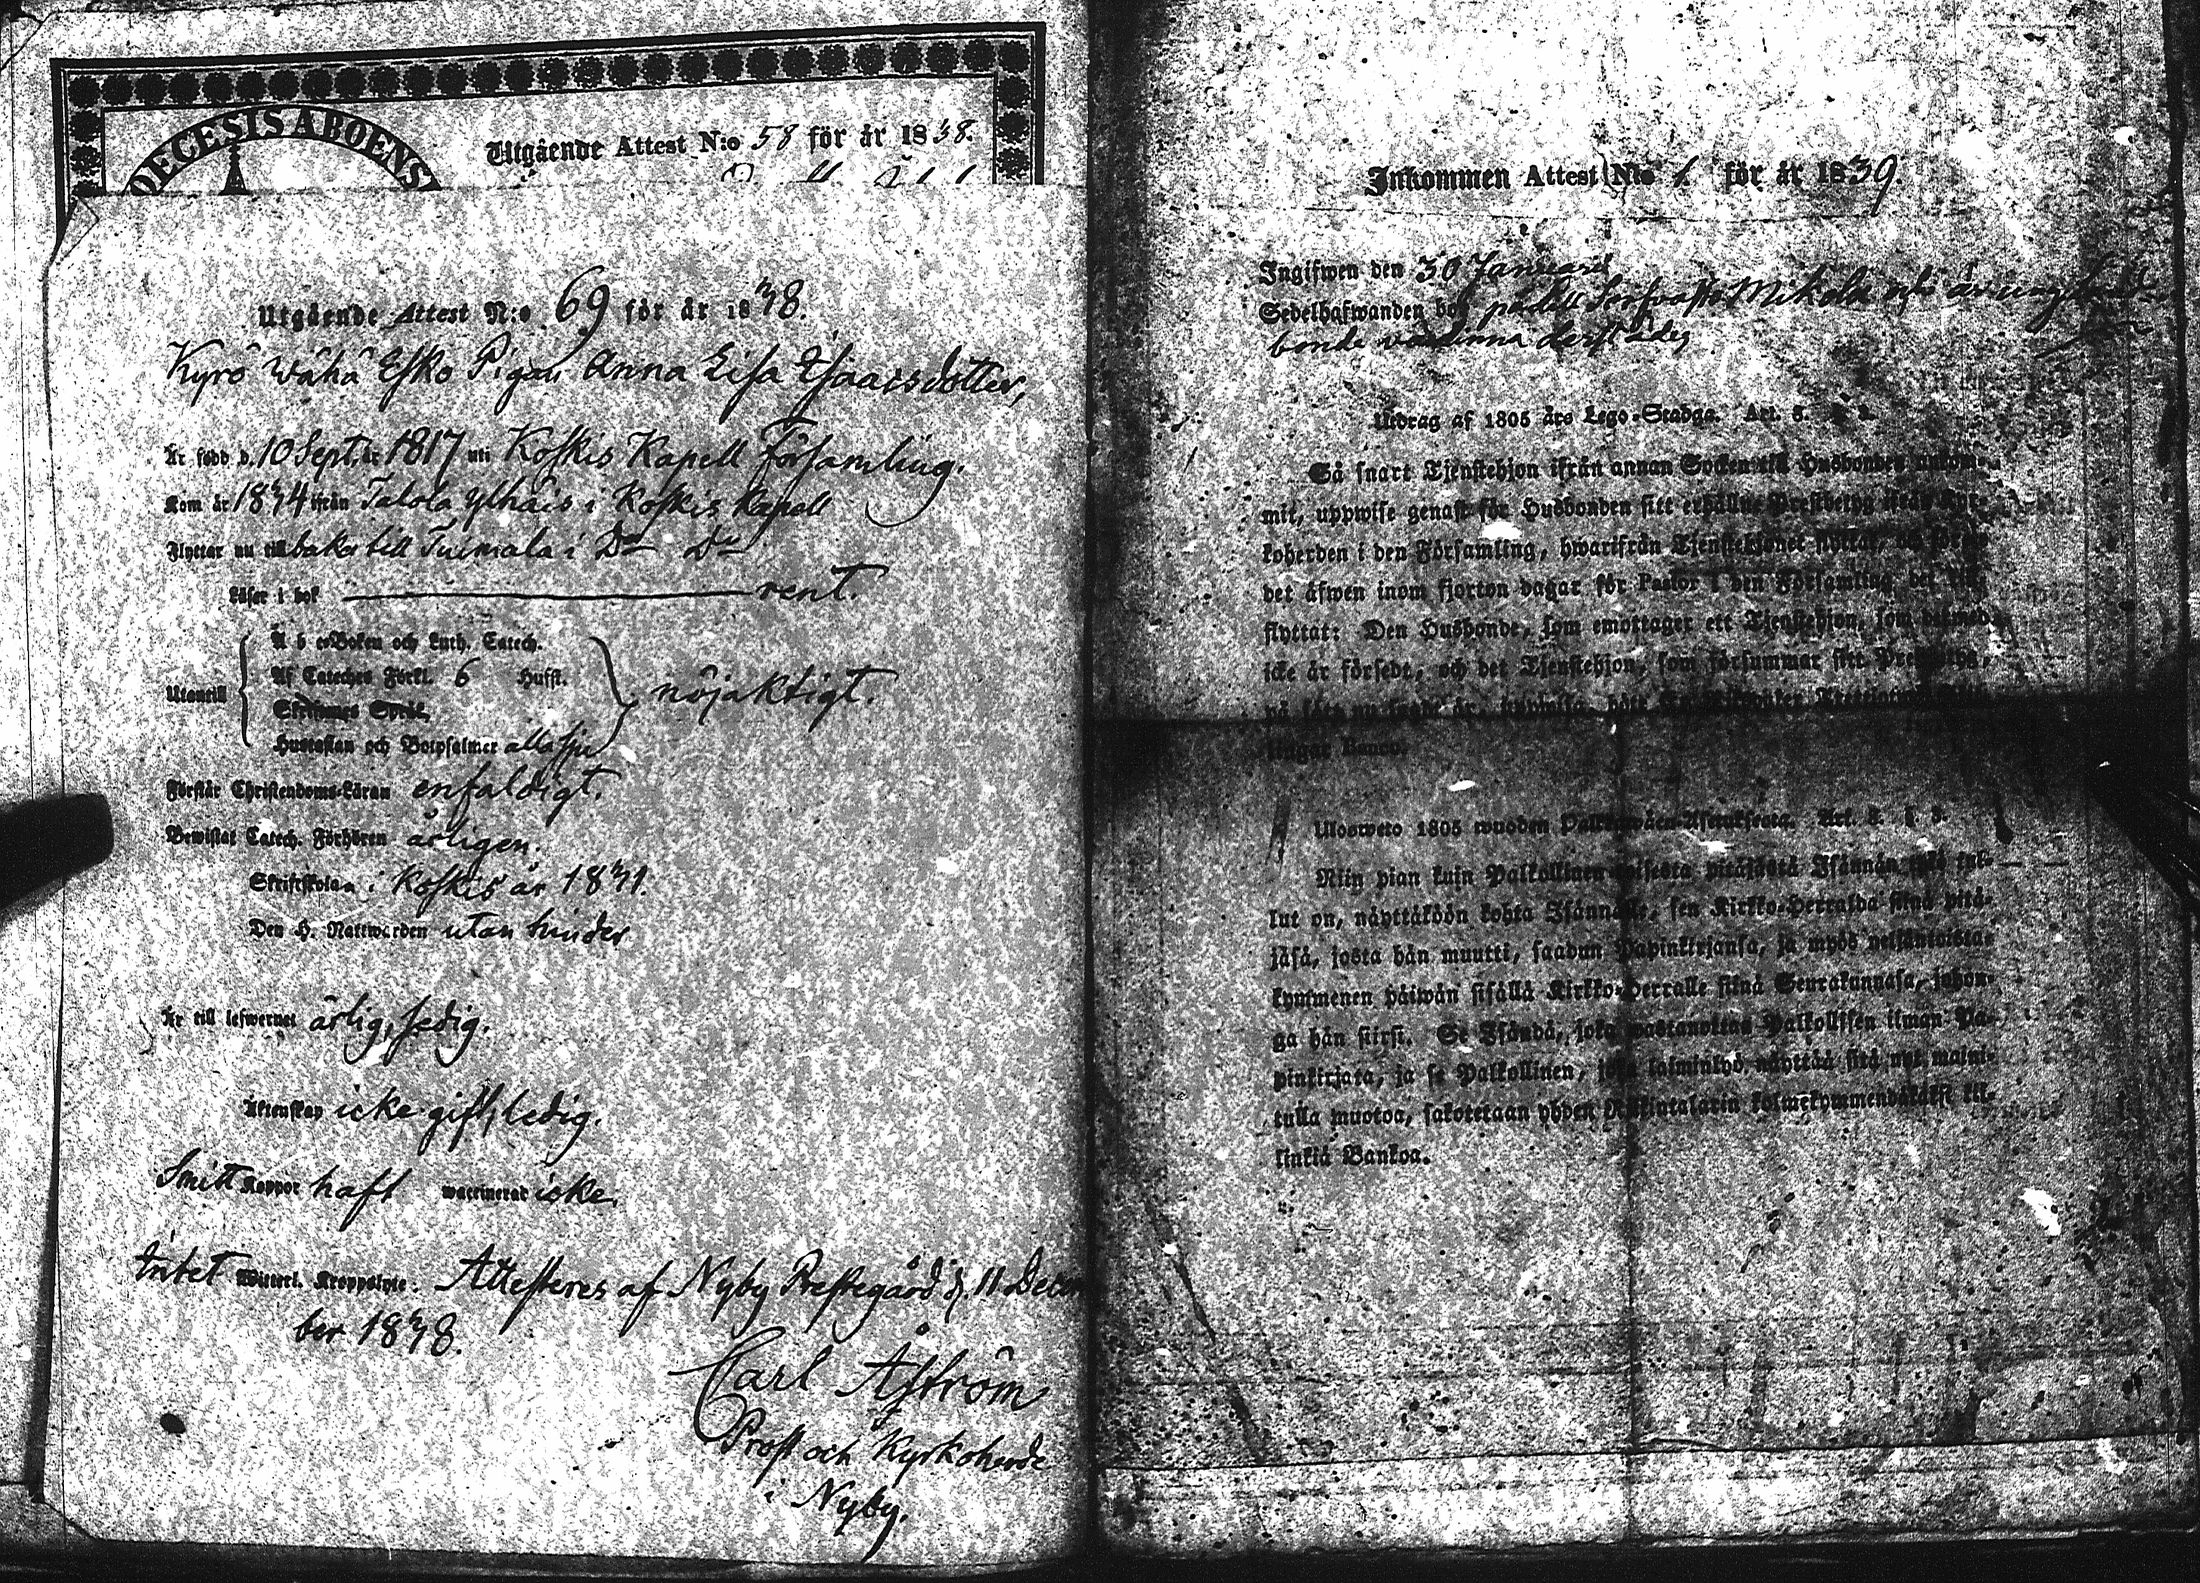 DECESIS ABOENS
Utgående Attest N:o 58 för år 1838.
Utgående Attest N:o 69 för år 1838.
Kyrö Wähä Esko Pigan Anna Lisa Isaacsdotter,
Är född d. 10 Sept. år 1817 uti Koskis Kapell Församling.
Kom år 1834 ifrån Talola ylhäis i Koskis Kapell
Flyttar nu till baka till Tuimala i Do Do
Läser i bok rent.
A b c-Boken och Luth. Catech.
Af Cateches Förkl. 6 Hufst.
Utantill nöjaktigt.
Skriftenes Språk,
Hustaflan och Botpsalmer alla sju
Förstår Christendoms-Läran enfaldigt.
Bewistat Catech. Förhören årligen.
Skriftskolan i Koskis år 1831.
Den H. Nattwarden utan hinder
Är till lefwernet ärlig, sedig.
Äktenskap icke gift, ledig.
Smitt Koppor haft waccinerad icke.
Intet Witterl. Kroppslyte. Attesteres af Nyby Prestegård d. 11 Decem
ber 1838.
Carl Åström
Prost och Kyrkoherde
i Nyby.
Inkommen Attest N:o 1. för år 1839.
Ingifwen den 30 Januarii
Sedelhafwanden bor Mikola
bonde derstädes
Utdrag af 1805 års Lego-Stadga. Art. 3. § 3.
Så snart Tjenstehjon ifrån annan Socken till Husbonden ankom-
mit, uppwise genast för Husbonden sitt erhållne Prestbetyg ifrån Kyr-
koherden i den Församling, hwarifrån Tjenstehjonet flyttat
det äfwen inom fjorton dagar för Pastor i den Församling, det till-
flyttat: Den Husbonde, som emottager ett Tjenstehjon, som dermed
icke är försedt, och det Tjenstehjon, som försummar sitt Prestbetyg,
på sätt nu sagdt är, uppwisa, böte
lingar Banco.
Uloswето 1805 wuoden Palkkawäen-Asetuksesta. Art. 3. § 3.
Niin pian kuin Palkollinen toisesta pitäjästä Isännän tykö tul-
lut on, näyttäköön kohta Isännälle, sen Kirkko-Herralda siinä pitä-
jäsä, josta hän muutti, saadun Papinkirjansa, ja myös neljäntoista-
kymmenen päiwän sisällä Kirkko-Herralle siinä Seurakunnasa, johon-
ga hän siirsi. Se Isändä, joka wastanottaa Palkollisen ilman Pa-
pinkirjata, ja se Palkollinen, joka laiminlyö näyttää sitä nyt maini-
tulla muotoa, sakotetaan yhden Riikintalarin kolmekymmendäkaksi kil-
linkiä Bankoa.